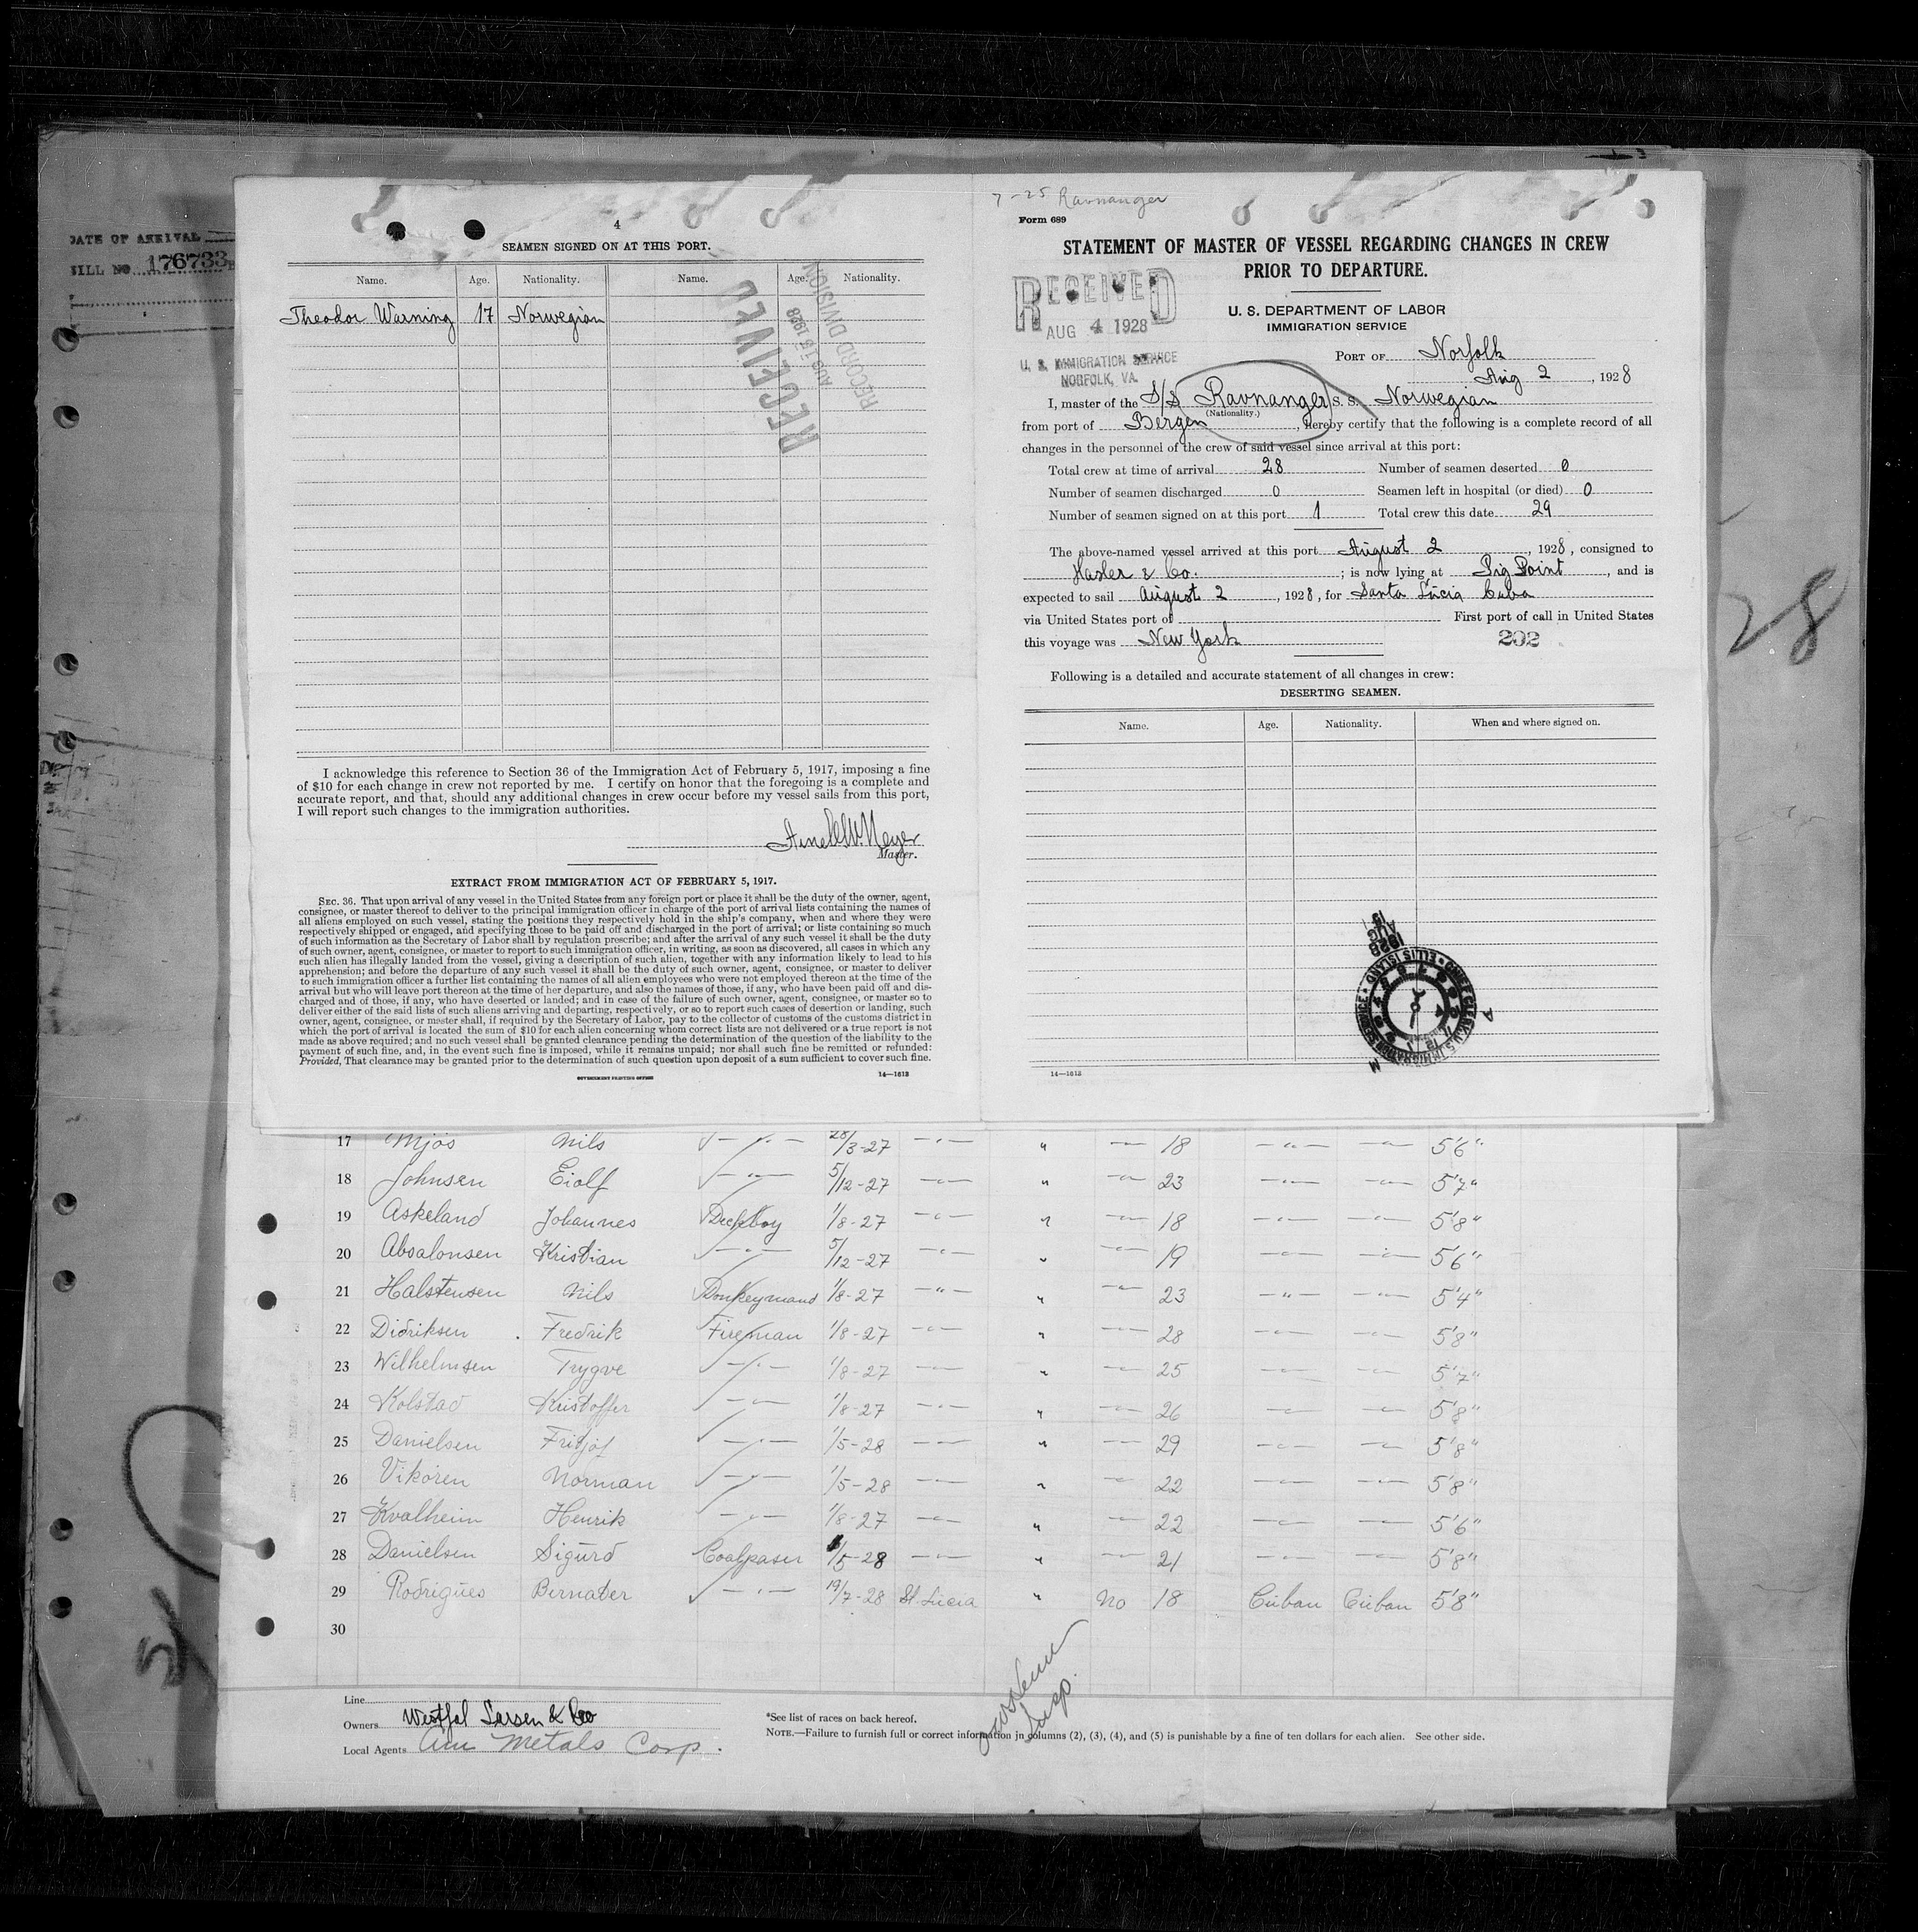 DATE OF ARRIVAL
BILL NO 176733
4
SEAMEN SIGNED ON AT THIS PORT.
Name. Age. Nationality. Name. Age. Nationality.
Theodor Warning 17 Norwegian
RECEIVED
AUG 15 1928
RECORD DIVISION
I acknowledge this reference to Section 36 of the Immigration Act of February 5, 1917, imposing a fine
of $10 for each change in crew not reported by me. I certify on honor that the foregoing is a complete and
accurate report, and that, should any additional changes in crew occur before my vessel sails from this port,
I will report such changes to the immigration authorities.
Meyer
Master.
EXTRACT FROM IMMIGRATION ACT OF FEBRUARY 5, 1917.
SEC. 36. That upon arrival of any vessel in the United States from any foreign port or place it shall be the duty of the owner, agent,
consignee, or master thereof to deliver to the principal immigration officer in charge of the port of arrival lists containing the names of
all aliens employed on such vessel, stating the positions they respectively hold in the ship's company, when and where they were
respectively shipped or engaged, and specifying those to be paid off and discharged in the port of arrival; or lists containing so much
of such information as the Secretary of Labor shall by regulation prescribe; and after the arrival of any such vessel it shall be the duty
of such owner, agent, consignee, or master to report to such immigration officer, in writing, as soon as discovered, all cases in which any
such alien has illegally landed from the vessel, giving a description of such alien, together with any information likely to lead to his
apprehension; and before the departure of any such vessel it shall be the duty of such owner, agent, consignee, or master to deliver
to such immigration officer a further list containing the names of all alien employees who were not employed thereon at the time of the
arrival but who will leave port thereon at the time of her departure, and also the names of those, if any, who have been paid off and dis-
charged and of those, if any, who have deserted or landed; and in case of the failure of such owner, agent, consignee, or master so to
deliver either of the said lists of such aliens arriving and departing, respectively, or so to report such cases of desertion or landing, such
owner, agent, consignee, or master shall, if required by the Secretary of Labor, pay to the collector of customs of the customs district in
which the port of arrival is located the sum of $10 for each alien concerning whom correct lists are not delivered or a true report is not
made as above required; and no such vessel shall be granted clearance pending the determination of the question of the liability to the
payment of such fine, and, in the event such fine is imposed, while it remains unpaid; nor shall such fine be remitted or refunded:
Provided, That clearance may be granted prior to the determination of such question upon deposit of a sum sufficient to cover such fine.
GOVERNMENT PRINTING OFFICE 14—1612
7-25 Ravnanger
Form 689
STATEMENT OF MASTER OF VESSEL REGARDING CHANGES IN CREW
PRIOR TO DEPARTURE.
RECEIVED
AUG 4 1928
U. S. IMMIGRATION SERVICE
NORFOLK, VA.
U. S. DEPARTMENT OF LABOR
IMMIGRATION SERVICE
PORT OF Norfolk
Aug 2, 1928
I, master of the S/S Ravnanger S. S. Norwegian
(Nationality.)
from port of Bergen, hereby certify that the following is a complete record of all
changes in the personnel of the crew of said vessel since arrival at this port:
Total crew at time of arrival 28 Number of seamen deserted 0
Number of seamen discharged 0 Seamen left in hospital (or died) 0
Number of seamen signed on at this port 1 Total crew this date 29
The above-named vessel arrived at this port August 2, 1928, consigned to
Hasler & Co. ; is now lying at Pig Point, and is
expected to sail August 2, 1928, for Santa Lucia Cuba
via United States port of First port of call in United States
this voyage was New York 202
Following is a detailed and accurate statement of all changes in crew:
DESERTING SEAMEN.
Name. Age. Nationality. When and where signed on.
1928 AUG 15
CHIEF CLERK U.S. IMMIGRATION SERVICE ELLIS ISLAND
14—1612
28
17 Mjøs Nils —"— 28/3-27 —"— " —"— 18 —"— —"— 5'6"
18 Johnsen Eiolf —"— 5/12-27 —"— " —"— 23 —"— —"— 5'7"
19 Askeland Johannes Deckboy 1/8-27 —"— " —"— 18 —"— —"— 5'8"
20 Absalonsen Kristian —"— 5/12-27 —"— " —"— 19 —"— —"— 5'6"
21 Halstensen Nils Donkeymand 1/8-27 —"— " —"— 23 —"— —"— 5'4"
22 Didriksen Fredrik Fireman 1/8-27 —"— " —"— 28 —"— —"— 5'8"
23 Wilhelmsen Trygve —"— 1/8-27 —"— " —"— 25 —"— —"— 5'7"
24 Kolstad Kristoffer —"— 1/8-27 —"— " —"— 26 —"— —"— 5'8"
25 Danielsen Fritjof —"— 1/5-28 —"— " —"— 29 —"— —"— 5'8"
26 Vikøren Norman —"— 1/5-28 —"— " —"— 22 —"— —"— 5'8"
27 Kvalheim Henrik —"— 1/8-27 —"— " —"— 22 —"— —"— 5'6"
28 Danielsen Sigurd Coalpaser 1/5-28 —"— " —"— 21 —"— —"— 5'8"
29 Rodrigues Bernater —"— 19/7-28 St. Lucia " No 18 Cuban Cuban 5'8"
30
Line
Owners Westfal Larsen & Co
Local Agents Am Metals Corp.
Insp.
*See list of races on back hereof.
NOTE.—Failure to furnish full or correct information in columns (2), (3), (4), and (5) is punishable by a fine of ten dollars for each alien. See other side.